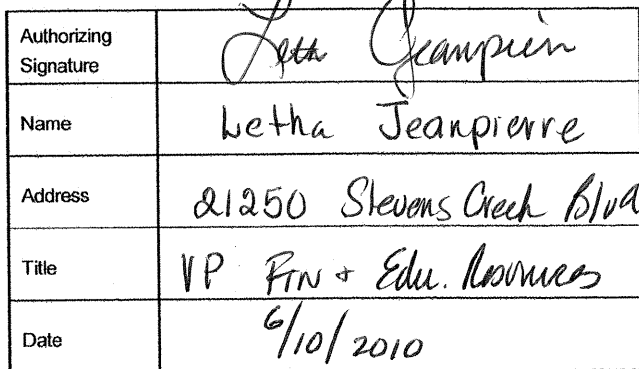 Authorizing
Signature
Letha Jeanpierre
Name
Letha Jeanpierre
Address
21250 Stevens Creek Blvd
Title
VP FIN + Edu. Resources
Date
6/10/2010